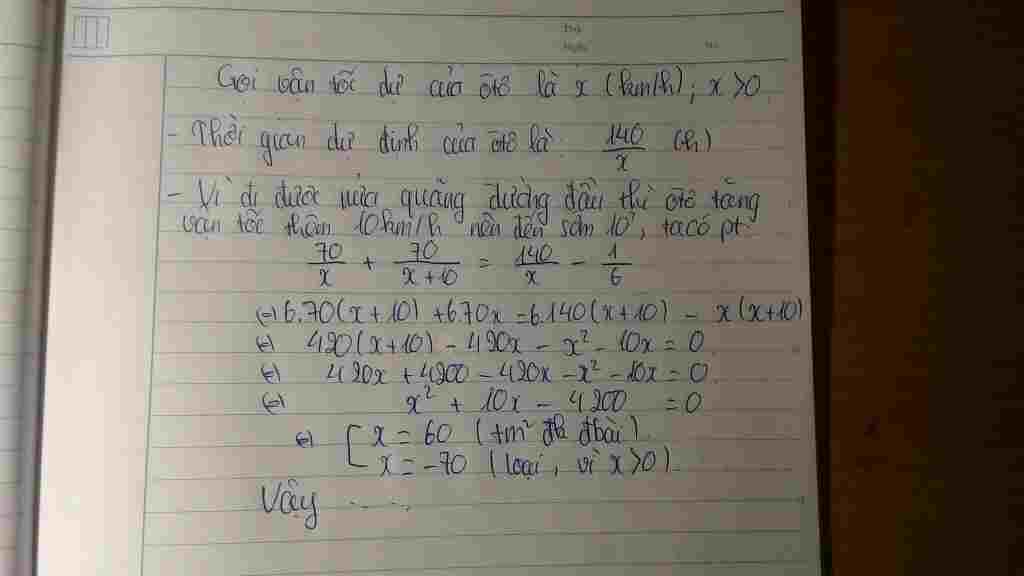 Gọi vận tốc dự của ôtô là x (km/h); x >0
- Thời gian dự định của ôtô là: 140/x (h)
- Vì đi được nửa quãng đường đầu thì ôtô tăng
vận tốc thêm 10km/h nên đến sớm 10', ta có pt:
70/x + 70/(x+10) = 140/x - 1/6
(=) 6.70(x+10) + 6.70x = 6.140(x+10) - x(x+10)
(=) 420(x+10) - 420x - x² - 10x = 0
(=) 420x + 4200 - 420x - x² - 10x = 0
(=) x² + 10x - 4200 = 0
(=) [ x = 60 (tm² đk đbài)
x = -70 (loại, vì x>0)
Vậy .....